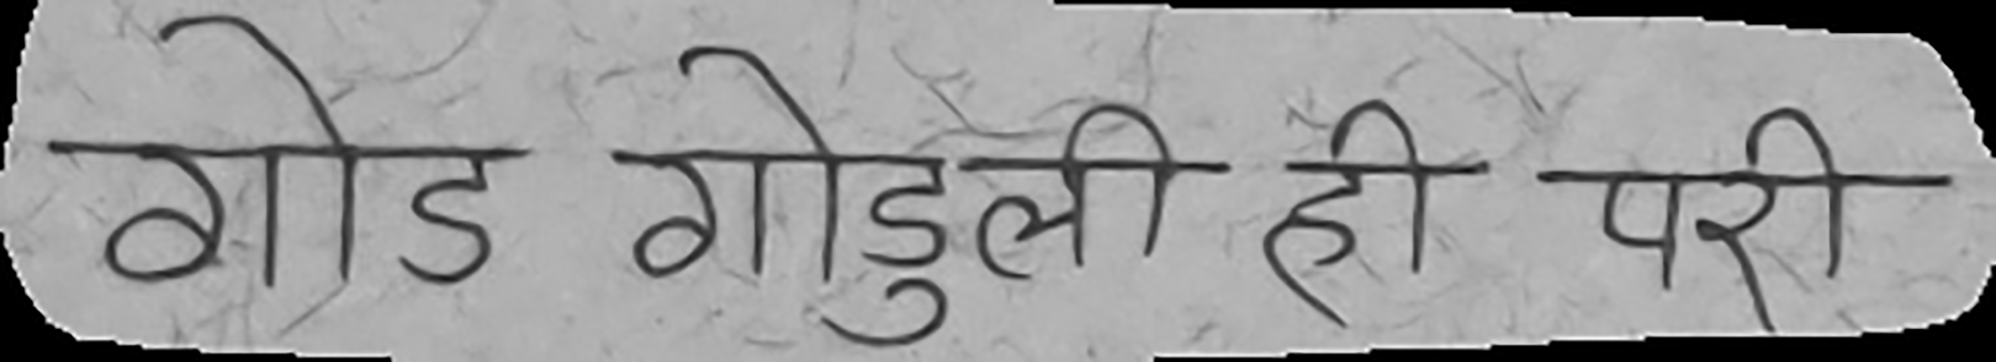 गोड गोडुली ही परी